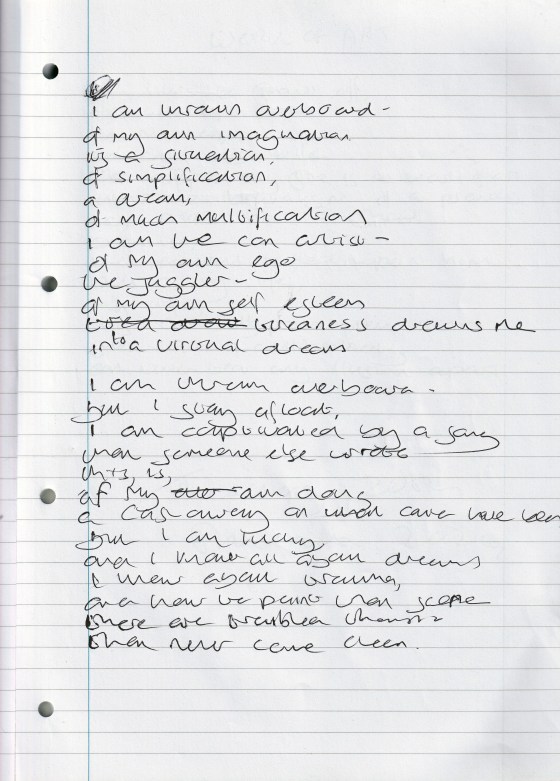 I am thrown overboard -
of my own imagination
its a situation,
of simplification,
a dream,
of much multification
I am the con artist -
of my own ego
the juggler -
of my own self esteem
tiredness draws me
into a virtual dream
I am thrown overboard -
but I stay afloat,
I am captivated by a song
that someone else wrote
this, is,
of my own doing
a cast away on what could have been
but I am lucky
and I know all about dreams
I know about trauma,
and how to paint that scene
there are troubled thoughts
that never come clean.